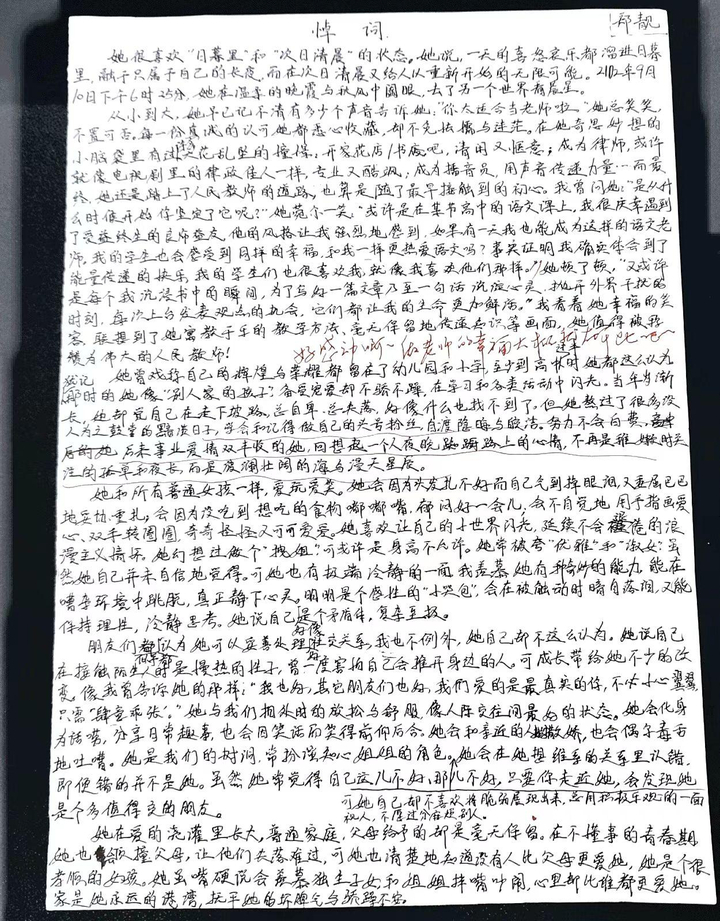 悼词
郑靓
她很喜欢"日暮里"和"次日清晨"的状态。她说,一天的喜怒哀乐都溜进日暮
里,融于只属于自己的长夜,而在次日清晨又给人以重新开始的无限可能。2102年9月
10日下午6时25分,她在温柔的晚霞与秋风中阖眼,去了另一个世界看晨星。
从小到大,她早已记不清有多少个声音告诉她,"你太适合当老师啦。"她总笑笑,
不置可否。每一份真诚的认可她都悉心收藏,却不免犹豫与迷茫。在她奇思妙想的
小脑袋里有过许多天花乱坠的憧憬:开家花店/书店吧,清闲又惬意;成为律师,或许
就像电视剧里的律政佳人一样,专业又酷飒;成为播音员,用声音传递力量…而最
终,她还是踏上了人民教师的道路,也算是随了最早接触到的初心。我曾问她:"是从什
么时候开始你坚定了它呢?"她莞尔一笑,"或许是在某节高中的语文课上,我很庆幸遇到
了受益终生的良师益友,他的风格让我强烈地感到,如果有一天我也能成为这样的语文老
师,我的学生也会感受到同样的幸福,和我一样更热爱语文吗?事实证明我确实体会到了
能量传递的快乐,我的学生们也很喜欢我,就像我喜欢他们那样。"她顿了顿,"又或许
是每个我沉浸书中的瞬间,为了与好一篇文章乃至一句话沉淀心灵、抛开外界干扰的
时刻,每次上台发表观点的机会,它们都让我的生命更加鲜活。"我看着她幸福的笑
容,联想到了她寓教于乐的教学方法、毫无保留地传递知识等画面,她值得被称
赞为伟大的人民教师!
好感动啊~做老师的幸福大抵
登记
她曾戏称自己的辉煌与荣耀都留在了幼儿园和小学,至少到高中时她都这么认为。
那时的她像"别人家的孩子",备受宠爱却不骄不躁,在学习和各类活动中闪光。当年岁渐
长,她却觉自己在走下坡路,总自卑、总失落,好像什么也找不到了。但她熬过了很多没
人为之鼓掌的黯淡日子,学会和记得做自己的头号粉丝,自渡阴晦与皎洁。努力不会白费,
后来事业爱情双丰收的她,回想起一个人夜晚踱蹰路上的心情,不再是稚嫩时关
注的孤单和夜长,而是波澜壮阔的海与漫天星辰。
她和所有普通女孩一样,爱玩爱笑。她会因为头发扎不好而自己气到掉眼泪,又委屈巴巴
地妥协、重扎;会因为没吃到想吃的食物嘟嘟嘴、郁闷好一会儿;会不自觉地用手指画爱
心、双手转圈圈,奇奇怪怪又可可爱爱。她喜欢让自己的小世界闪光,延续不会褪色的浪
漫主义情怀。她幻想过做个"拽姐",可或许是身高不允许。她常被夸"优雅"和"淑女",虽
然她自己并未自信地觉得。可她也有极端冷静的一面,我羡慕她有种奇妙的能力,能在
嘈杂环境中跳脱,真正静下心灵。明明是个感性的"小哭包",会在被触动时暗自落泪,又能
保持理性,冷静思考。她说自己是个矛盾体,复杂至极。
朋友们都认为她可以妥善处理好像社交关系,我也不例外,她自己却不这么认为。她说自己
在接触陌生人时是慢热的性子,曾一度害怕自己会推开身边的人。可成长带给她不少的改
变,像我曾告诉她的那样:"我也好,其它朋友们也好,我们爱的是最真实的你,不必小心翼翼,
只需'肆意乖张'。"她与我们相处时的放松与舒服,像人际交往间最好的状态。她会化身
为话唠,分享日常趣事,也会因笑话而笑得前仰后合。她会和亲近的人撒娇,也会偶尔毒舌
地吐嘈。她是我们的树洞,常扮演知心姐姐的角色。她会在她想维系的关系里认错,
即便错的并不是她。虽然她常觉得自己这儿不好、那儿不好,只要你走近她,会发现她
是个多值得交的朋友。
可她自己却不喜欢将脆弱展现出来,总用积极乐观的一面
视人,不愿过分麻烦别人。
她在爱的浇灌里长大,普通家庭,父母给予的却是毫无保留。在不懂事的青春期
她也会顶撞父母,让他们失落难过,可她也清楚地知道没有人比父母更爱她,她是个很
孝顺的女孩。她虽嘴硬说会羡慕独生子女和姐姐拌嘴吵闹,心里却比谁都更爱她。
家是她永远的港湾,抚平她的坏脾气与浮躁不安。